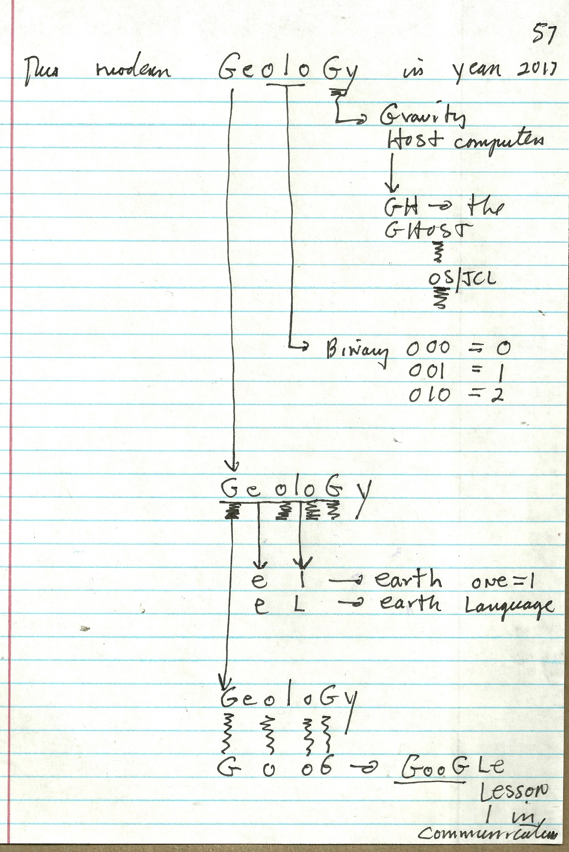 57
This modern GeoloGy in year 2017
Gravity
Host computers
GH → the
GHOST
OS/JCL
Binary 000 = 0
001 = 1
010 = 2
GeoloGy
e l → earth one=1
e L → earth Language
GeoloGy
G o o G → GooGLe
Lesson
1 in
Communication